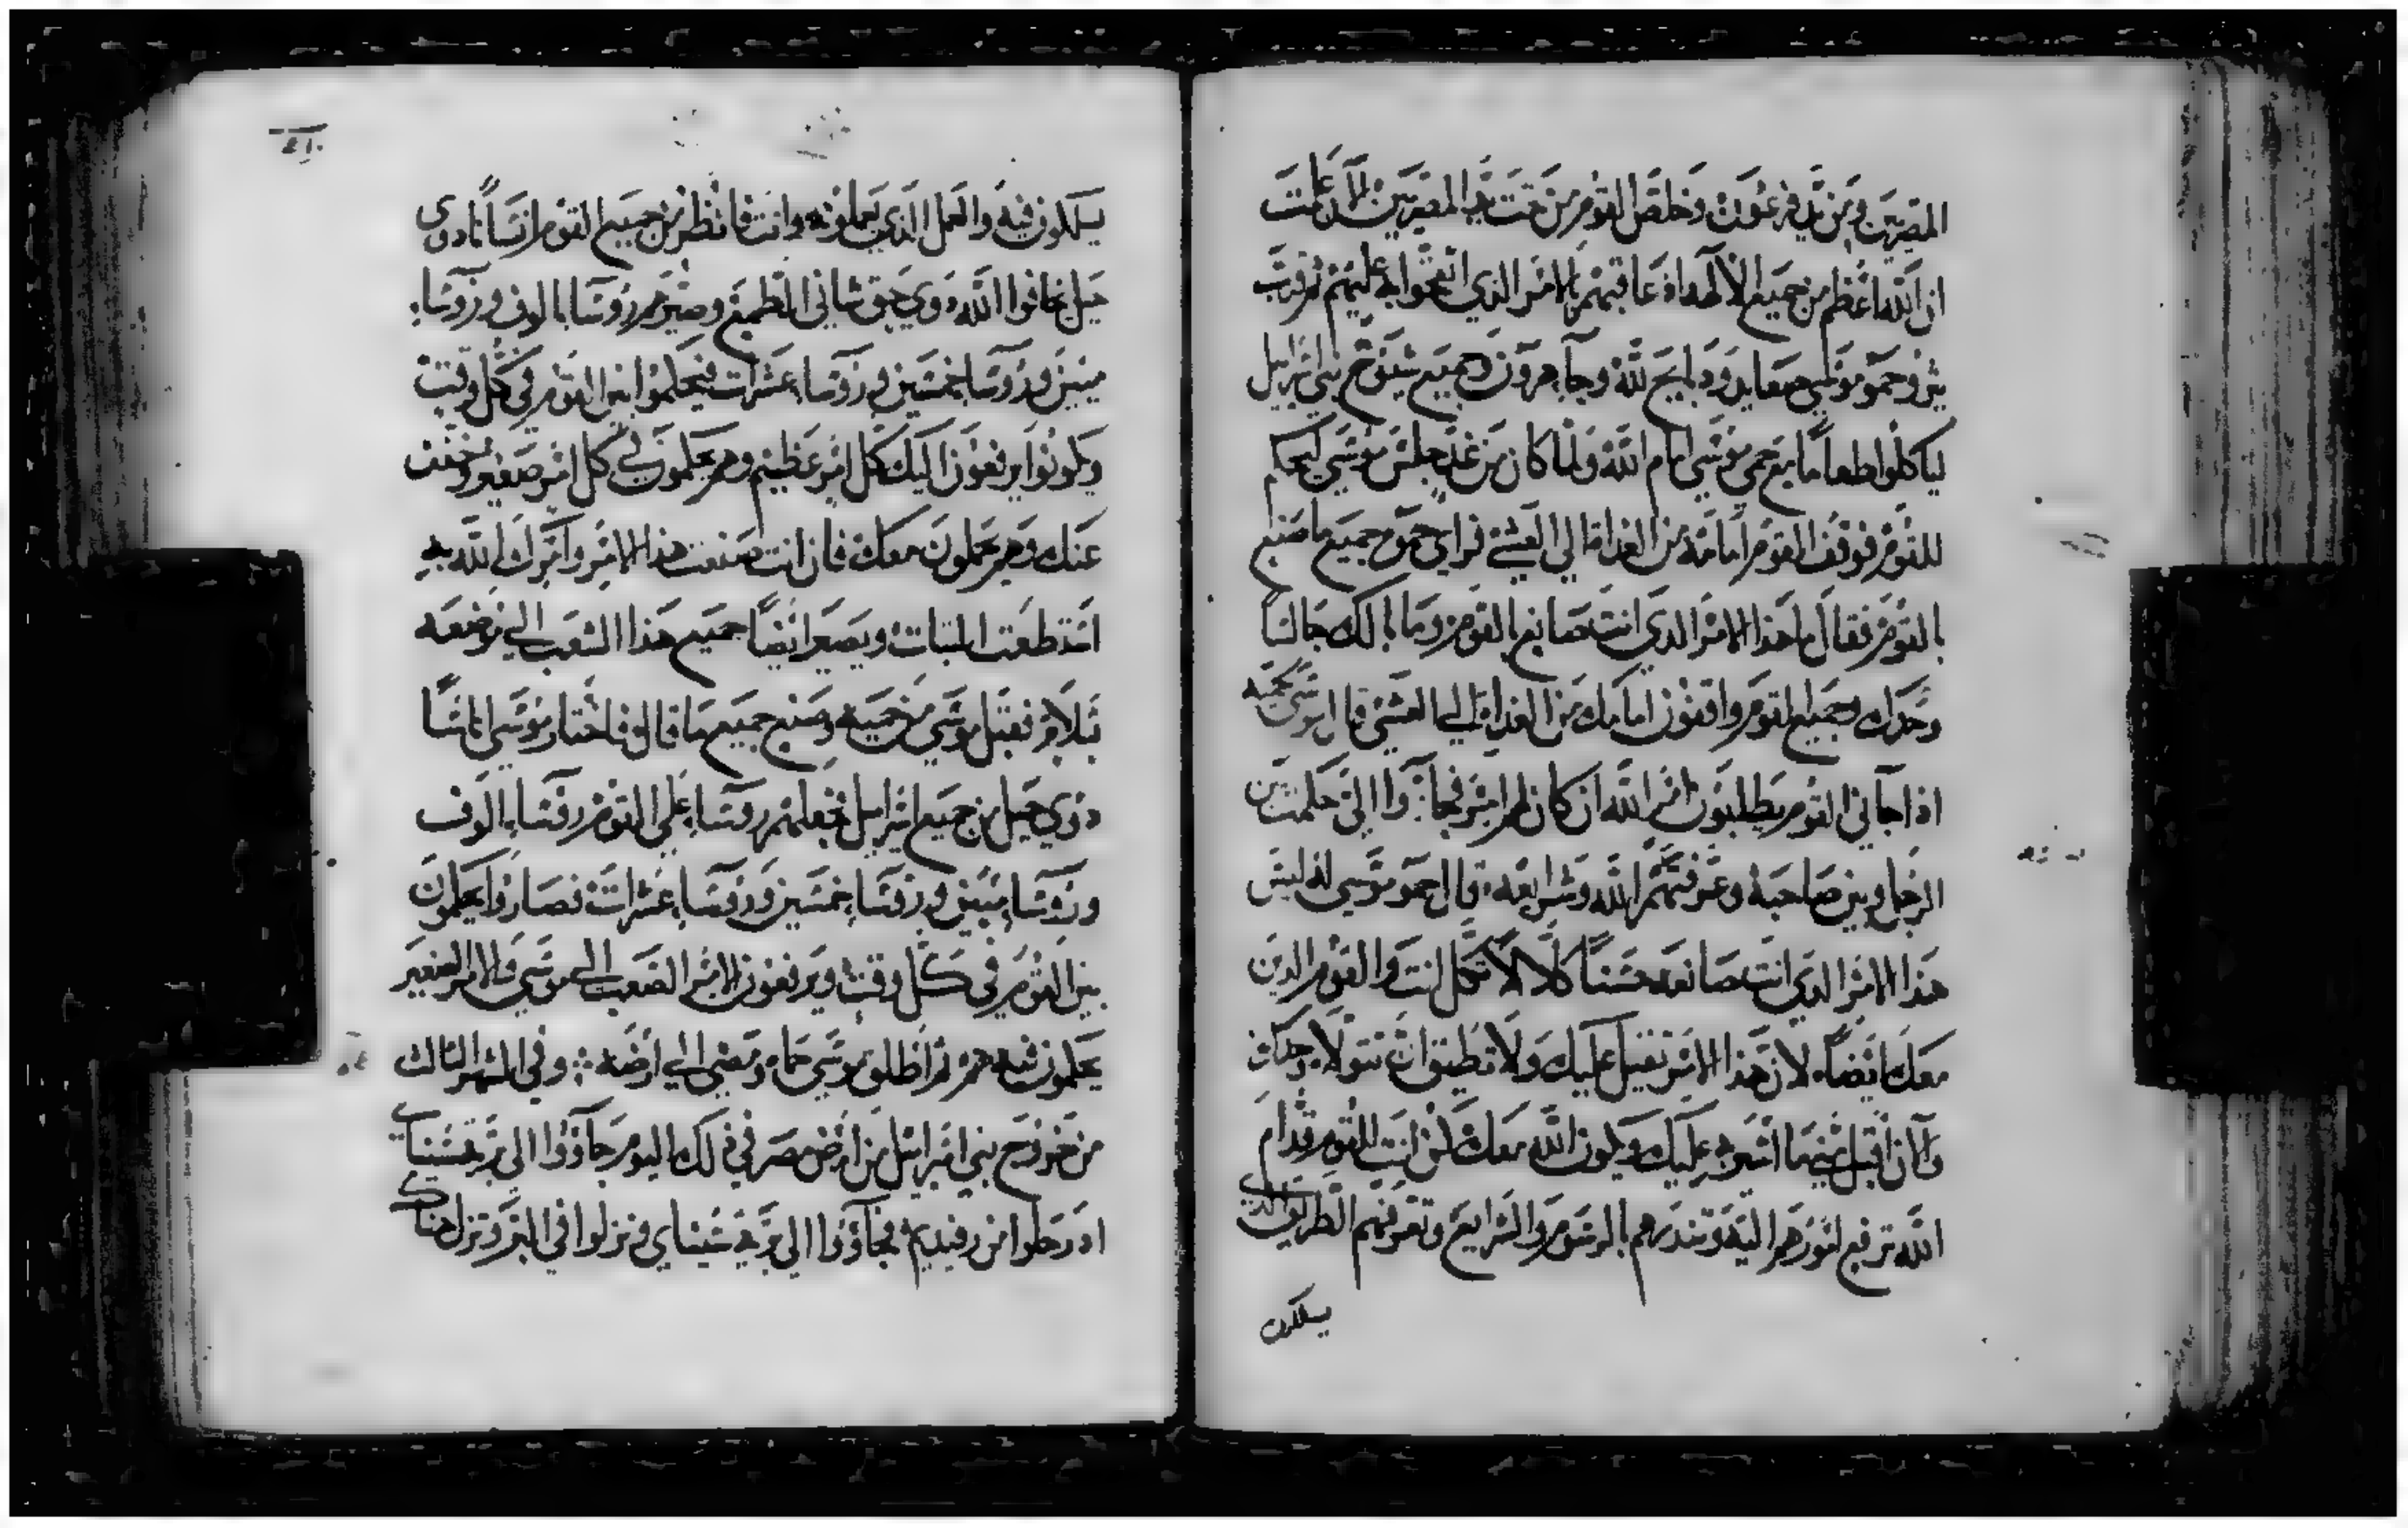 المصريين ومن يد فرعون وخلص القوم من تحت يد المصريين الان علمت
ان الله اعظم من جميع الالهه اذ عاقبهم بالامر الذي اتقحوا به عليهم ثم قرب
يثروحمو موسي صعايد وذبايح لله وجا هرون وجميع شيوخ بني اسراييل
لياكلوا طعاما مع حمي موسي امام الله ولما كان من غد جلس موسي ليحكم
للقوم فوقف القوم امامه من الغداة الي العشي فراي حموه جميع ما صنع
بالقوم فقال ما هذا الامر الذي انت صانع بالقوم وما بالك جالسا
وحدك وجميع القوم واقفون امامك من الغداة الي العشي قال موسي لحميه
اذا جاني القوم يطلبون امر الله ان كان لهم امر فجاؤوا الي حكمت بين
الرجل وبين صاحبه وعرفتهم امر الله وشرايعه قال حمو موسي له ليس
هذا الامر الذي انت صانعه حسنا كلالا تكل انت والقوم الذين
معك ايضا لان هذا الامر ثقيل عليك ولا تطيق ان تتولاه وحدك
والان اقبل مني ما اشير به عليك ويكون الله معك كن انت للقوم قدام
الله ترفع امورهم اليه وتنذرهم بالرسوم والشرايع وتعرفهم الطريق الذي
يسلكون
يسلكون فيه والعمل الذي يعملونه وانت فانظر من جميع القوم اناسا ذوي
حيل خافوا الله ذوي حق شاني الطمع وصيرهم رؤسا الوف ورؤسا
ميين ورؤسا خمسين ورؤسا عشرات فيحكموا بين القوم في كل وقت
ويكونوا يرفعون اليك كل امر عظيم وهم يحكمون في كل امر صغير وتخفف
عنك وهم يحملون معك فان انت صنعت هذا الامر وامرك الله به
استطعت الثبات ويصير ايضا جميع هذا الشعب الي موضعه
بسلام فقبل موسي من حميه وصنع جميع ما قال فاختار موسي اناسا
ذوي حيل من جميع اسراييل فجعلهم روسا علي القوم رؤسا الوف
ورؤسا ميين ورؤسا خمسين ورؤسا عشرات فصاروا يحكمون
بين القوم في كل وقت ويرفعون الامر الصعب الي موسي والامر الصغير
يحكمون فيه هم ثم اطلق موسي حماه ومضي الي ارضه وفي الشهر الثالث
من خروج بني اسراييل من ارض مصر في ذلك اليوم جاؤوا الي برية سيناي
اذ رحلوا من رفيديم فجاؤوا الي برية سيناي ونزلوا في البر ونزل هناك